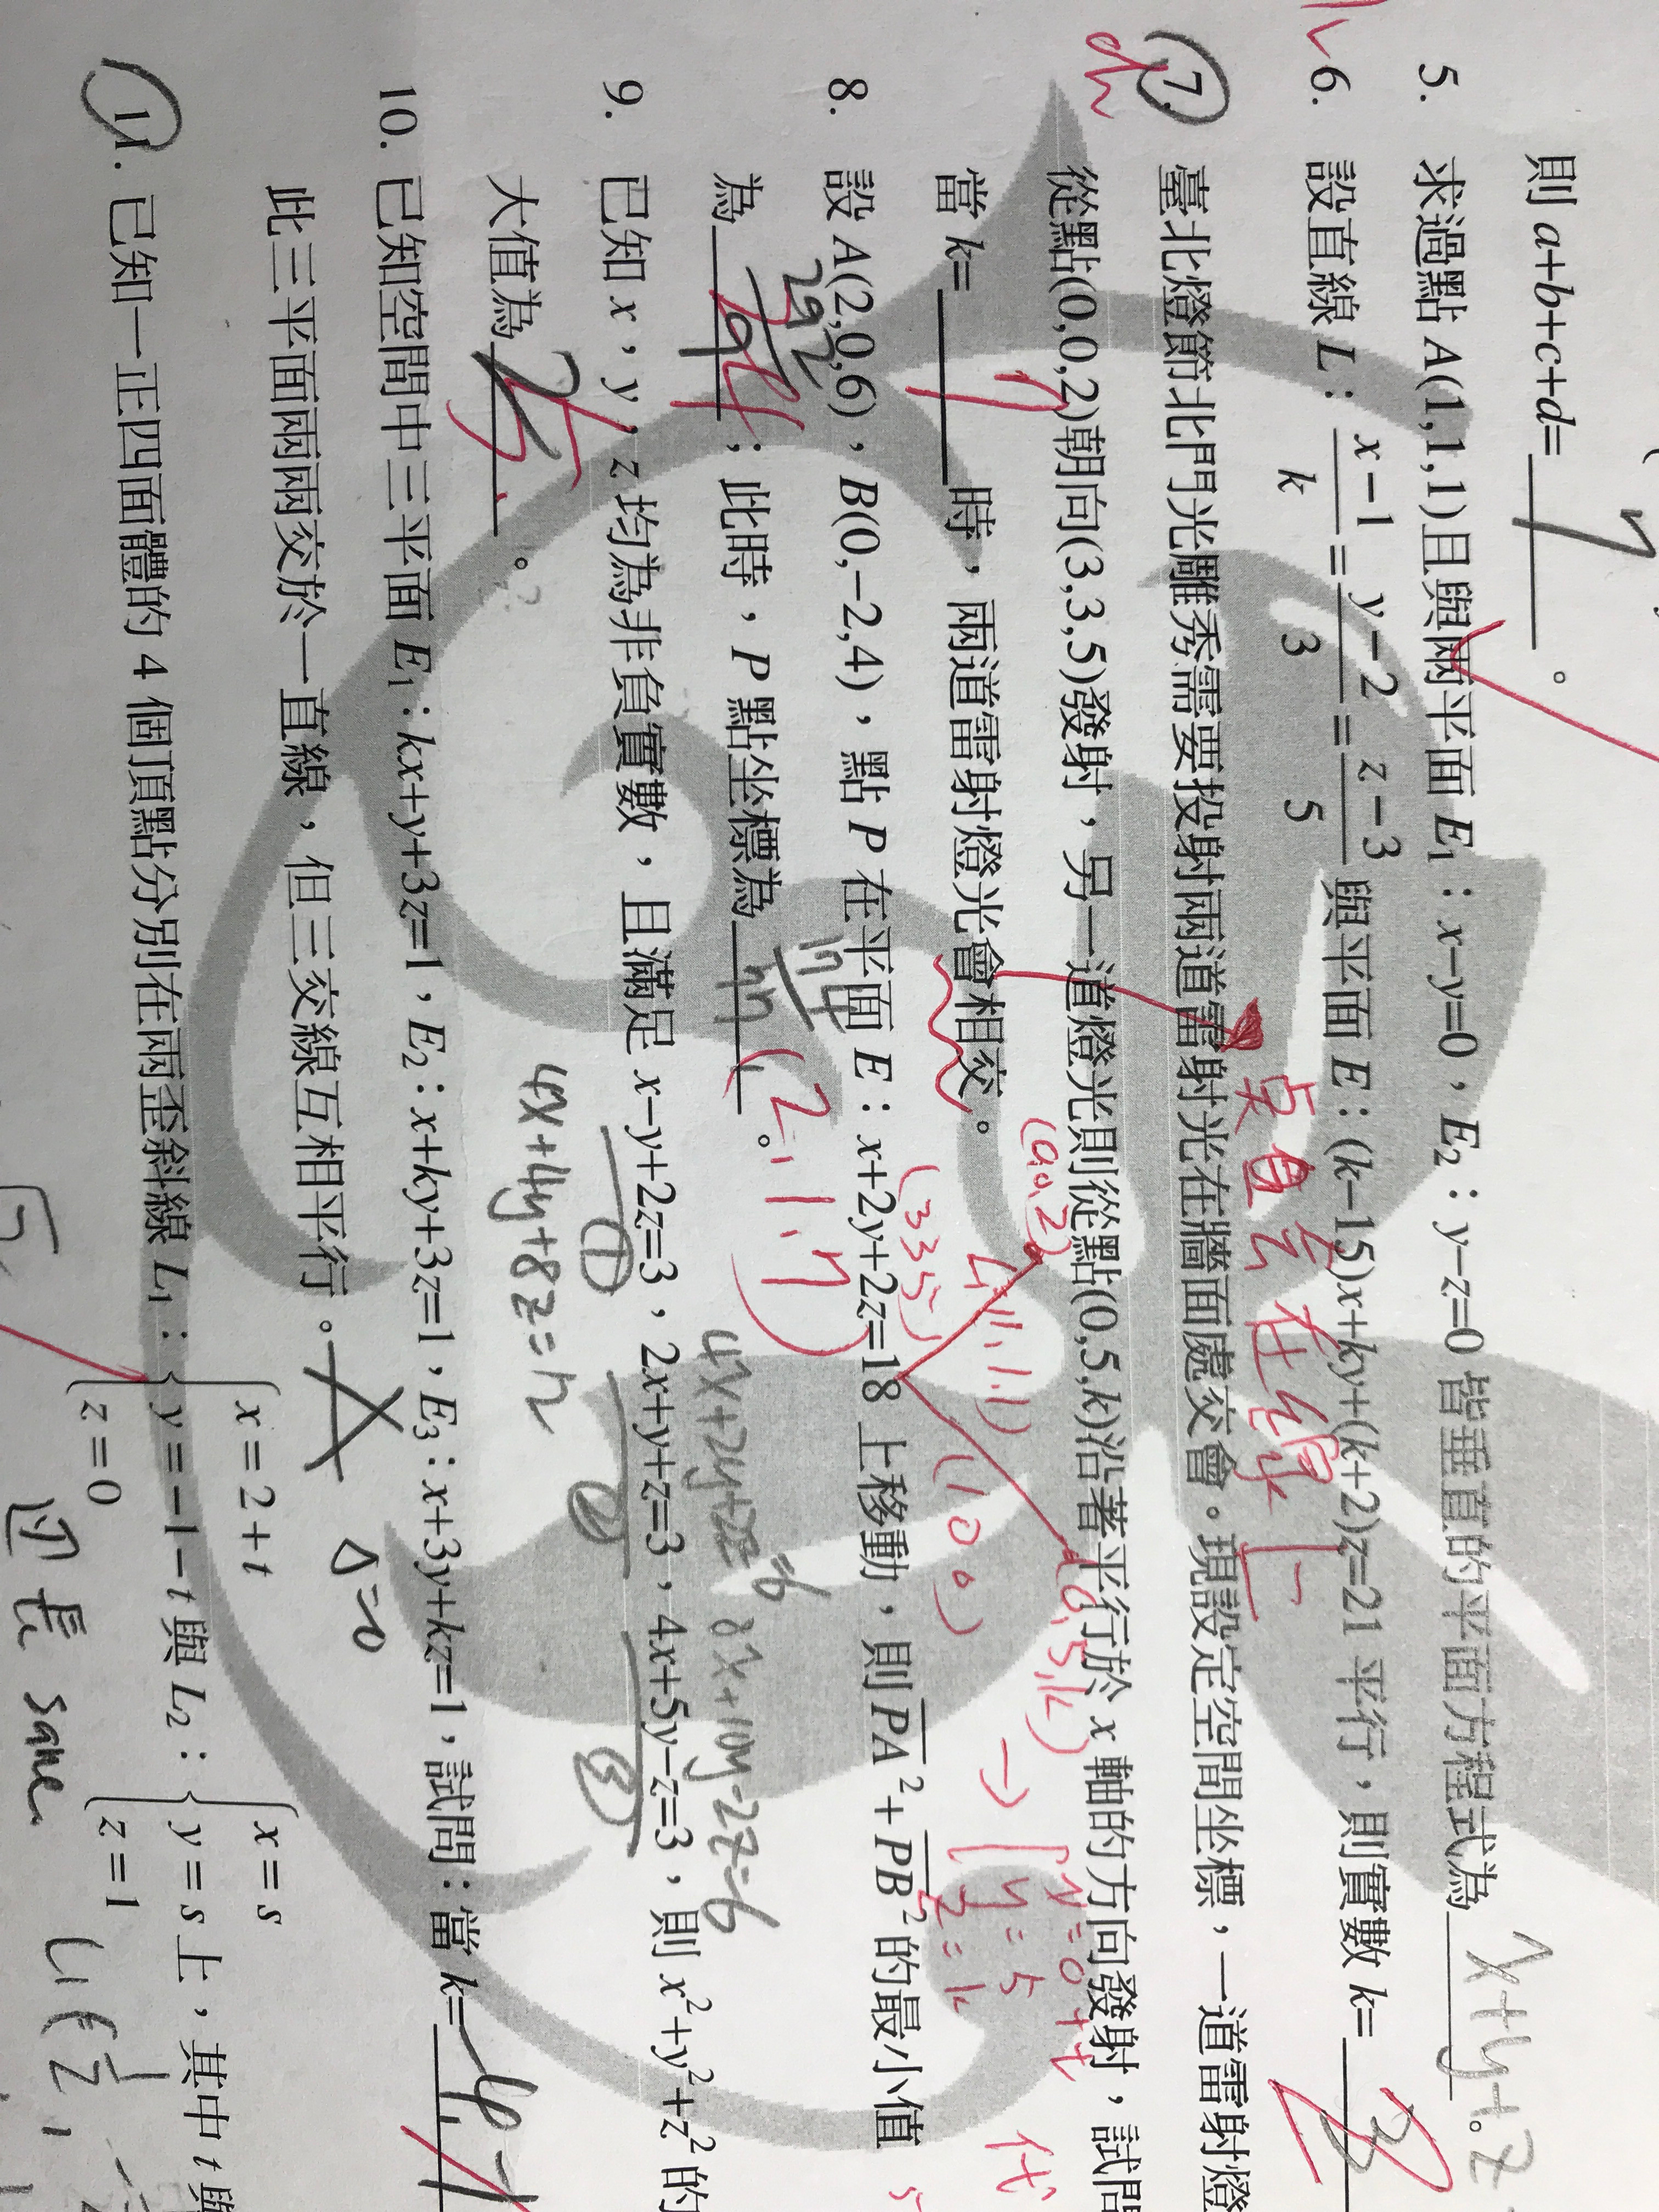 則 a+b+c+d= 7 。
5. 求過點 A(1,1,1)且與兩平面 E₁：x−y=0，E₂：y−z=0 皆垂直的平面方程式為 x+y+z 。
6. 設直線 L：(x−1)/k=(y−2)/3=(z−3)/5 與平面 E：(k−15)x+ky+(k+2)z=21 平行，則實數 k=
7. 臺北燈節北門光雕秀需要投射兩道雷射光在牆面處交會。現設定空間坐標，一道雷射燈
從點(0,0,2)朝向(3,3,5)發射，另一道燈光則從點(0,5,k)沿著平行於 x 軸的方向發射，試問
當 k= 7 時，兩道雷射燈光會相交。
(0,0,2)
(3 3 5)
(1,1,1)
(1 0 0)
(0,5,k)
x=0+t
y=5
z=k
代
8. 設 A(2,0,6)，B(0,−2,4)，點 P 在平面 E：x+2y+2z=18 上移動，則 PA²+PB²的最小值
為 ；此時，P 點坐標為 (2,1,7) 。
9. 已知 x，y，z 均為非負實數，且滿足 x−y+2z=3，2x+y+z=3，4x+5y−z=3，則 x²+y²+z²的
① ② ③
大值為 。
4x+2y+2z=6
8x+10y-2z=6
4x+4y+8z=12
10. 已知空間中三平面 E₁：kx+y+3z=1，E₂：x+ky+3z=1，E₃：x+3y+kz=1，試問：當 k= -4
此三平面兩兩交於一直線，但三交線互相平行。
Δ=0
11. 已知一正四面體的 4 個頂點分別在兩歪斜線 L₁：{x=2+t y=−1−t z=0 與 L₂：{x=s y=s z=1 上，其中 t 與
same